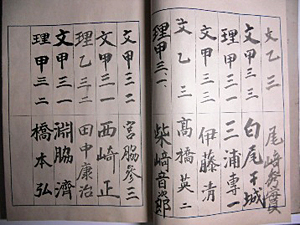 文乙三 尾崎
文甲三一 白尾干城
理甲三一 三浦專一
文甲三 伊藤清
文乙三 高橋英二
理甲三、一 柴崎音
文甲三二 宮脇參三
理乙三二 田中康治
文甲三一 西崎正
文甲三一 淵脇濟
理甲三二 橋本弘